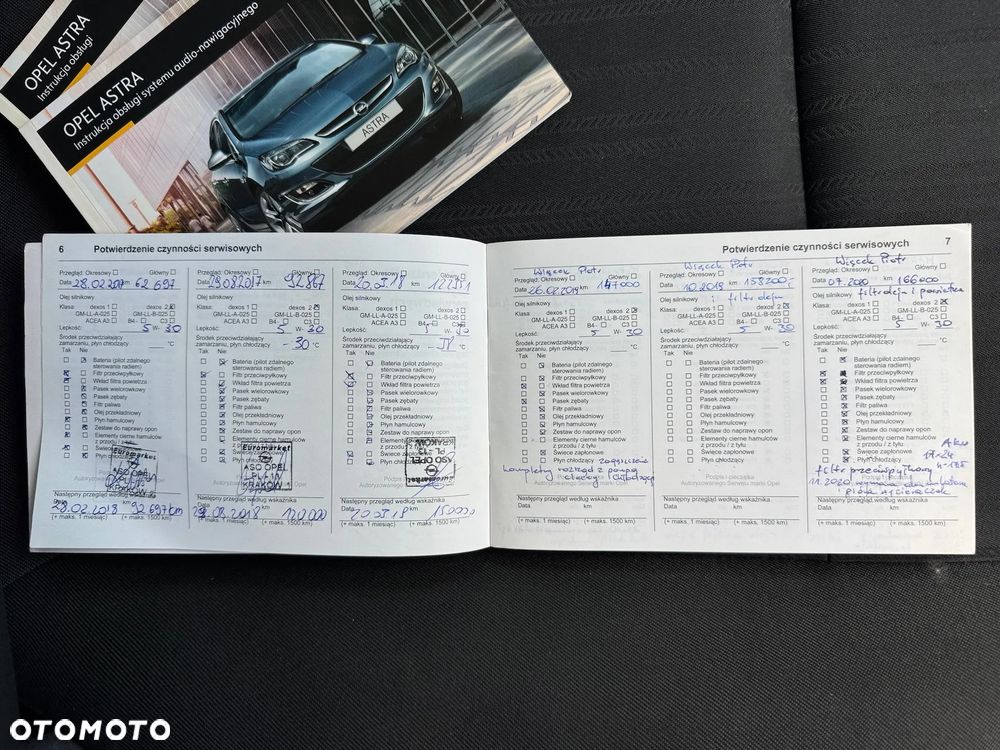 OPEL ASTRA
Instrukcja obsługi
OPEL ASTRA
Instrukcja obsługi systemu audio-nawigacyjnego
ASTRA
6 Potwierdzenie czynności serwisowych
Przegląd: Okresowy Główny
Data 28.02.2017 km 62 697
Olej silnikowy
Klasa: dexos 1 dexos 2
GM-LL-A-025 GM-LL-B-025
ACEA A3 B4- C3
Lepkość: 5 W- 30
Środek przeciwdziałający
zamarzaniu, płyn chłodzący °C
Tak Nie
Bateria (pilot zdalnego
sterowania radiem)
Filtr przeciwpyłkowy
Wkład filtra powietrza
Pasek wielorowkowy
Pasek zębaty
Filtr paliwa
Olej przekładniowy
Płyn hamulcowy
Zestaw do naprawy opon
Elementy cierne hamulców
z przodu / z tyłu
Świece zapłonowe
Płyn chłodzący
Euromarket
ASO OPEL
KRAKÓW
Następny przegląd według wskaźnika
Data km
28.02.2018 92 697 km
(+ maks. 1 miesiąc) (+ maks. 1500 km)
Przegląd: Okresowy Główny
Data 29.08.2017 km 92867
Olej silnikowy
Klasa: dexos 1 dexos 2
GM-LL-A-025 GM-LL-B-025
ACEA A3 B4- C3
Lepkość: 5 W- 30
Środek przeciwdziałający
zamarzaniu, płyn chłodzący - 30 °C
Tak Nie
Bateria (pilot zdalnego
sterowania radiem)
Filtr przeciwpyłkowy
Wkład filtra powietrza
Pasek wielorowkowy
Pasek zębaty
Filtr paliwa
Olej przekładniowy
Płyn hamulcowy
Zestaw do naprawy opon
Elementy cierne hamulców
z przodu / z tyłu
Euromarket
ASO OPEL
KRAKÓW
Następny przegląd według wskaźnika
Data km
08.2018 120 000
(+ maks. 1 miesiąc) (+ maks. 1500 km)
Przegląd: Okresowy Główny
Data km
Olej silnikowy
Klasa: dexos 1 dexos 2
GM-LL-A-025 GM-LL-B-025
ACEA A3 B4- C3
Lepkość: 5 W-
Środek przeciwdziałający
zamarzaniu, płyn chłodzący °C
Tak Nie
Bateria (pilot zdalnego
sterowania radiem)
Filtr przeciwpyłkowy
Wkład filtra powietrza
Pasek wielorowkowy
Pasek zębaty
Filtr paliwa
Olej przekładniowy
Płyn hamulcowy
Zestaw do naprawy opon
Świece zapłonowe
Płyn chłodzący
Euromarket
ASO OPEL
KRAKÓW
Następny przegląd według wskaźnika
Data km
(+ maks. 1 miesiąc) (+ maks. 1500 km)
Potwierdzenie czynności serwisowych 7
Więcek Piotr
Przegląd: Okresowy Główny
Data 26.02.2019 km 147000
Olej silnikowy
Klasa: dexos 1 dexos 2
GM-LL-A-025 GM-LL-B-025
ACEA A3 B4- C3
Lepkość: 5 W- 30
Środek przeciwdziałający
zamarzaniu, płyn chłodzący °C
Tak Nie
Bateria (pilot zdalnego
sterowania radiem)
Filtr przeciwpyłkowy
Wkład filtra powietrza
Pasek wielorowkowy
Pasek zębaty
Filtr paliwa
Olej przekładniowy
Płyn hamulcowy
Zestaw do naprawy opon
Elementy cierne hamulców
z przodu / z tyłu
Świece zapłonowe
Płyn chłodzący
Kompletny rozrząd z pompą
Następny przegląd według wskaźnika
Data km
(+ maks. 1 miesiąc) (+ maks. 1500 km)
Więcek Piotr
Przegląd: Okresowy Główny
Data 10.2019 km 158200
i filtr oleju
Olej silnikowy
Klasa: dexos 1 dexos 2
GM-LL-A-025 GM-LL-B-025
ACEA A3 B4- C3
Lepkość: 5 W- 30
Środek przeciwdziałający
zamarzaniu, płyn chłodzący °C
Tak Nie
Bateria (pilot zdalnego
sterowania radiem)
Filtr przeciwpyłkowy
Wkład filtra powietrza
Pasek wielorowkowy
Pasek zębaty
Filtr paliwa
Olej przekładniowy
Płyn hamulcowy
Zestaw do naprawy opon
Elementy cierne hamulców
z przodu / z tyłu
Świece zapłonowe
Płyn chłodzący
Podpis i pieczątka
Autoryzowanego Serwisu marki Opel
Następny przegląd według wskaźnika
Data km
(+ maks. 1 miesiąc) (+ maks. 1500 km)
Więcek Piotr
Przegląd: Okresowy Główny
Data 07.2020 km 166000
filtr oleju i powietrza
Olej silnikowy
Klasa: dexos 1 dexos 2
GM-LL-A-025 GM-LL-B-025
ACEA A3 B4- C3
Lepkość: 5 W- 30
Środek przeciwdziałający
zamarzaniu, płyn chłodzący °C
Tak Nie
Bateria (pilot zdalnego
sterowania radiem)
Filtr przeciwpyłkowy
Wkład filtra powietrza
Pasek wielorowkowy
Pasek zębaty
Filtr paliwa
Olej przekładniowy
Płyn hamulcowy
Zestaw do naprawy opon
Elementy cierne hamulców
z przodu / z tyłu
Świece zapłonowe
Płyn chłodzący
filtr przeciwpyłkowy
11.2020 wymiana akumulatora
i pióra wycieraczek
Następny przegląd według wskaźnika
Data km
(+ maks. 1 miesiąc) (+ maks. 1500 km)
OTOMOTO